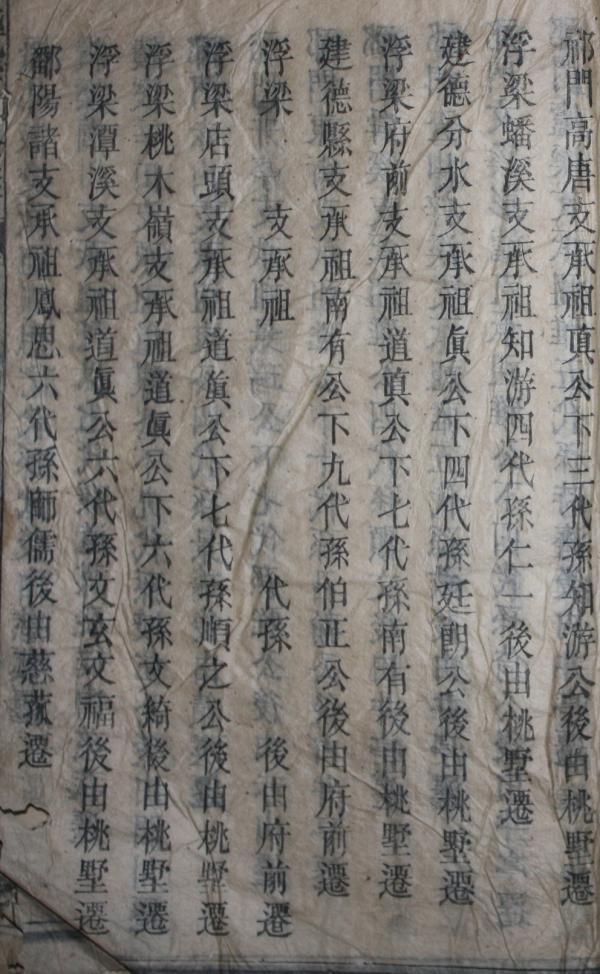 祁門高唐支承祖真公下三代孫知游公後由桃墅遷
浮梁蟠溪支承祖知游四代孫仁一後由桃墅遷
建德分水支承祖眞公下四代孫廷朗公後由桃墅遷
浮梁府前支承祖道真公下七代孫南有後由桃墅遷
建德縣支承祖南有公下九代孫伯正公後由府前遷
浮梁 支承祖 代孫 後由府前遷
浮梁店頭支承祖道眞公下七代孫順之公後由桃墅遷
浮梁桃木嶺支承祖道眞公下六代孫文綺後由桃墅遷
浮梁潭溪支承祖道眞公六代孫文玄文福後由桃墅遷
鄱陽諸支承祖鳳恩六代孫師儒後由慈菰遷